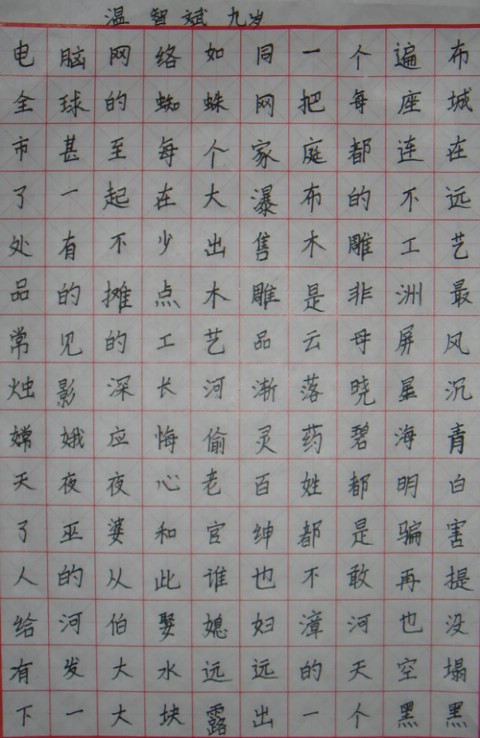 温智斌 九岁
电脑网络如同一个遍布
全球的蜘蛛网把每座城
市甚至每个家庭都连在
了一起在大瀑布的不远
处有不少出售木雕工艺
品的摊点木雕是非洲最
常见的工艺品云母屏风
烛影深长河渐落晓星沉
嫦娥应悔偷灵药碧海青
天夜夜心老百姓都明白
了巫婆和官绅都是骗害
人的从此谁也不敢再提
给河伯娶媳妇漳河也没
有发大水远远的天空塌
下一大块露出一个黑黑